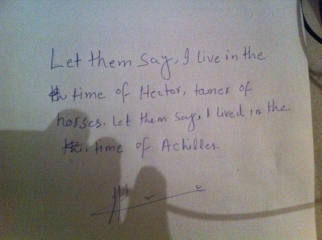 Let them say, I live in the
time of Hector, tamer of
horses. Let them say, I lived in the
time of Achilles.